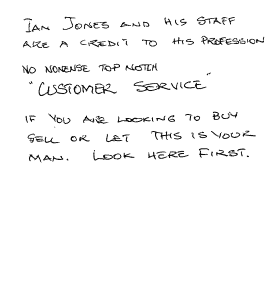 IAN JONES AND HIS STAFF
ARE A CREDIT TO HIS PROFESSION
NO NONENSE TOP NOTCH
"CUSTOMER SERVICE"
IF YOU ARE LOOKING TO BUY
SELL OR LET THIS IS YOUR
MAN. LOOK HERE FIRST.